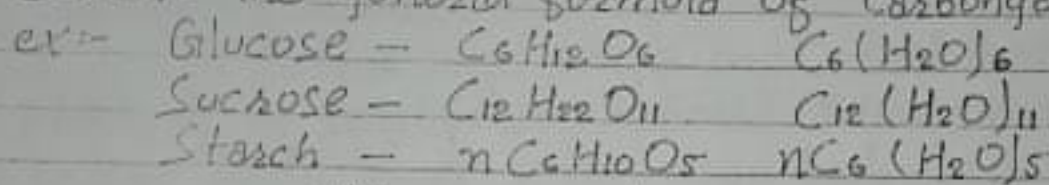 formula of
ex:- Glucose - C6H12O6 C6(H2O)6
Sucrose - C12H22O11 C12(H2O)11
Starch - nC6H10O5 nC6(H2O)5